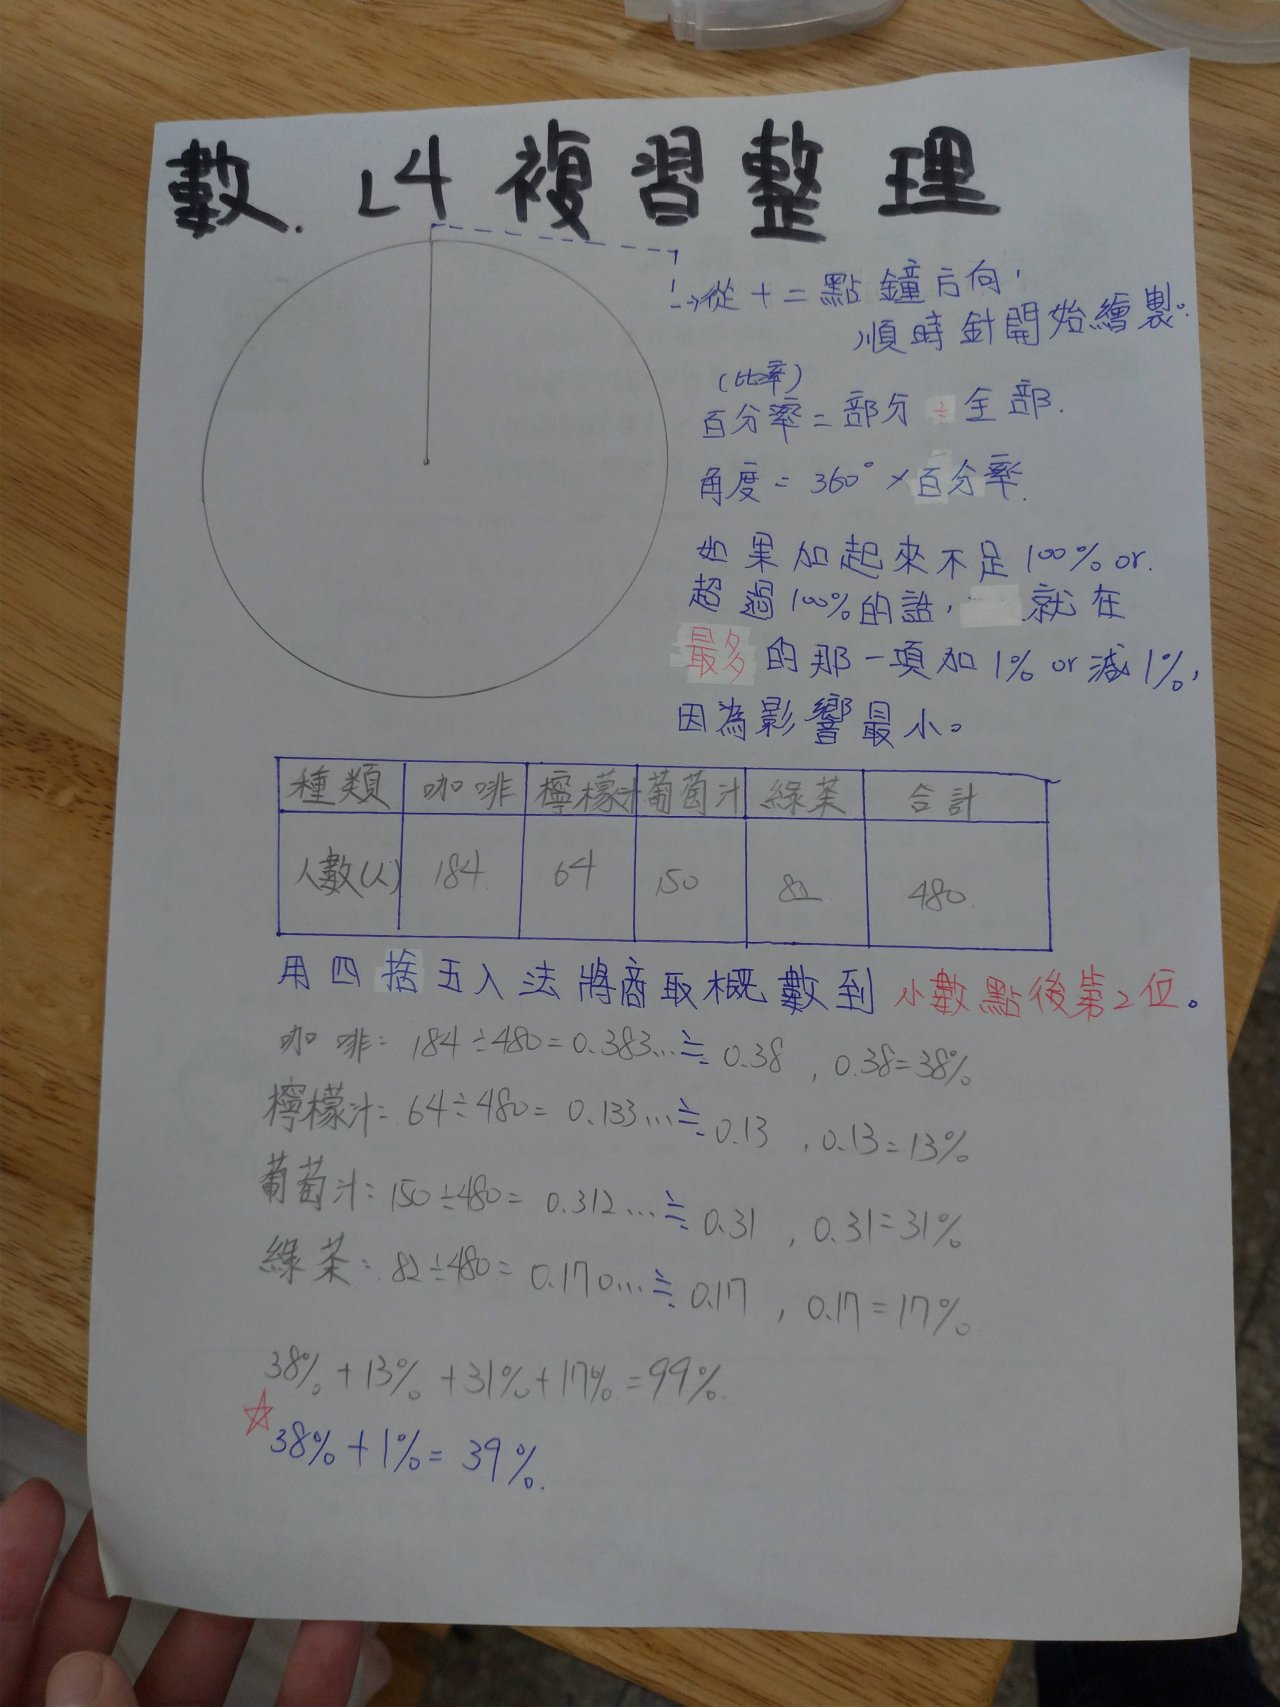 數. L4 複習整理
→從十二點鐘方向,
順時針開始繪製。
(比率)
百分率=部分÷全部.
角度=360°×百分率.
如果加起來不足100% or.
超過100%的話,就在
最多的那一項加1% or 減1%,
因為影響最小。
種類 咖啡 檸檬汁 葡萄汁 綠茶 合計
人數(人) 184 64 150 82 480
用四捨五入法將商取概數到小數點後第2位。
咖啡: 184÷480=0.383...≒0.38, 0.38=38%
檸檬汁: 64÷480=0.133...≒0.13, 0.13=13%
葡萄汁: 150÷480=0.312...≒0.31, 0.31=31%
綠茶: 82÷480=0.170...≒0.17, 0.17=17%
38%+13%+31%+17%=99%.
☆38%+1%=39%.